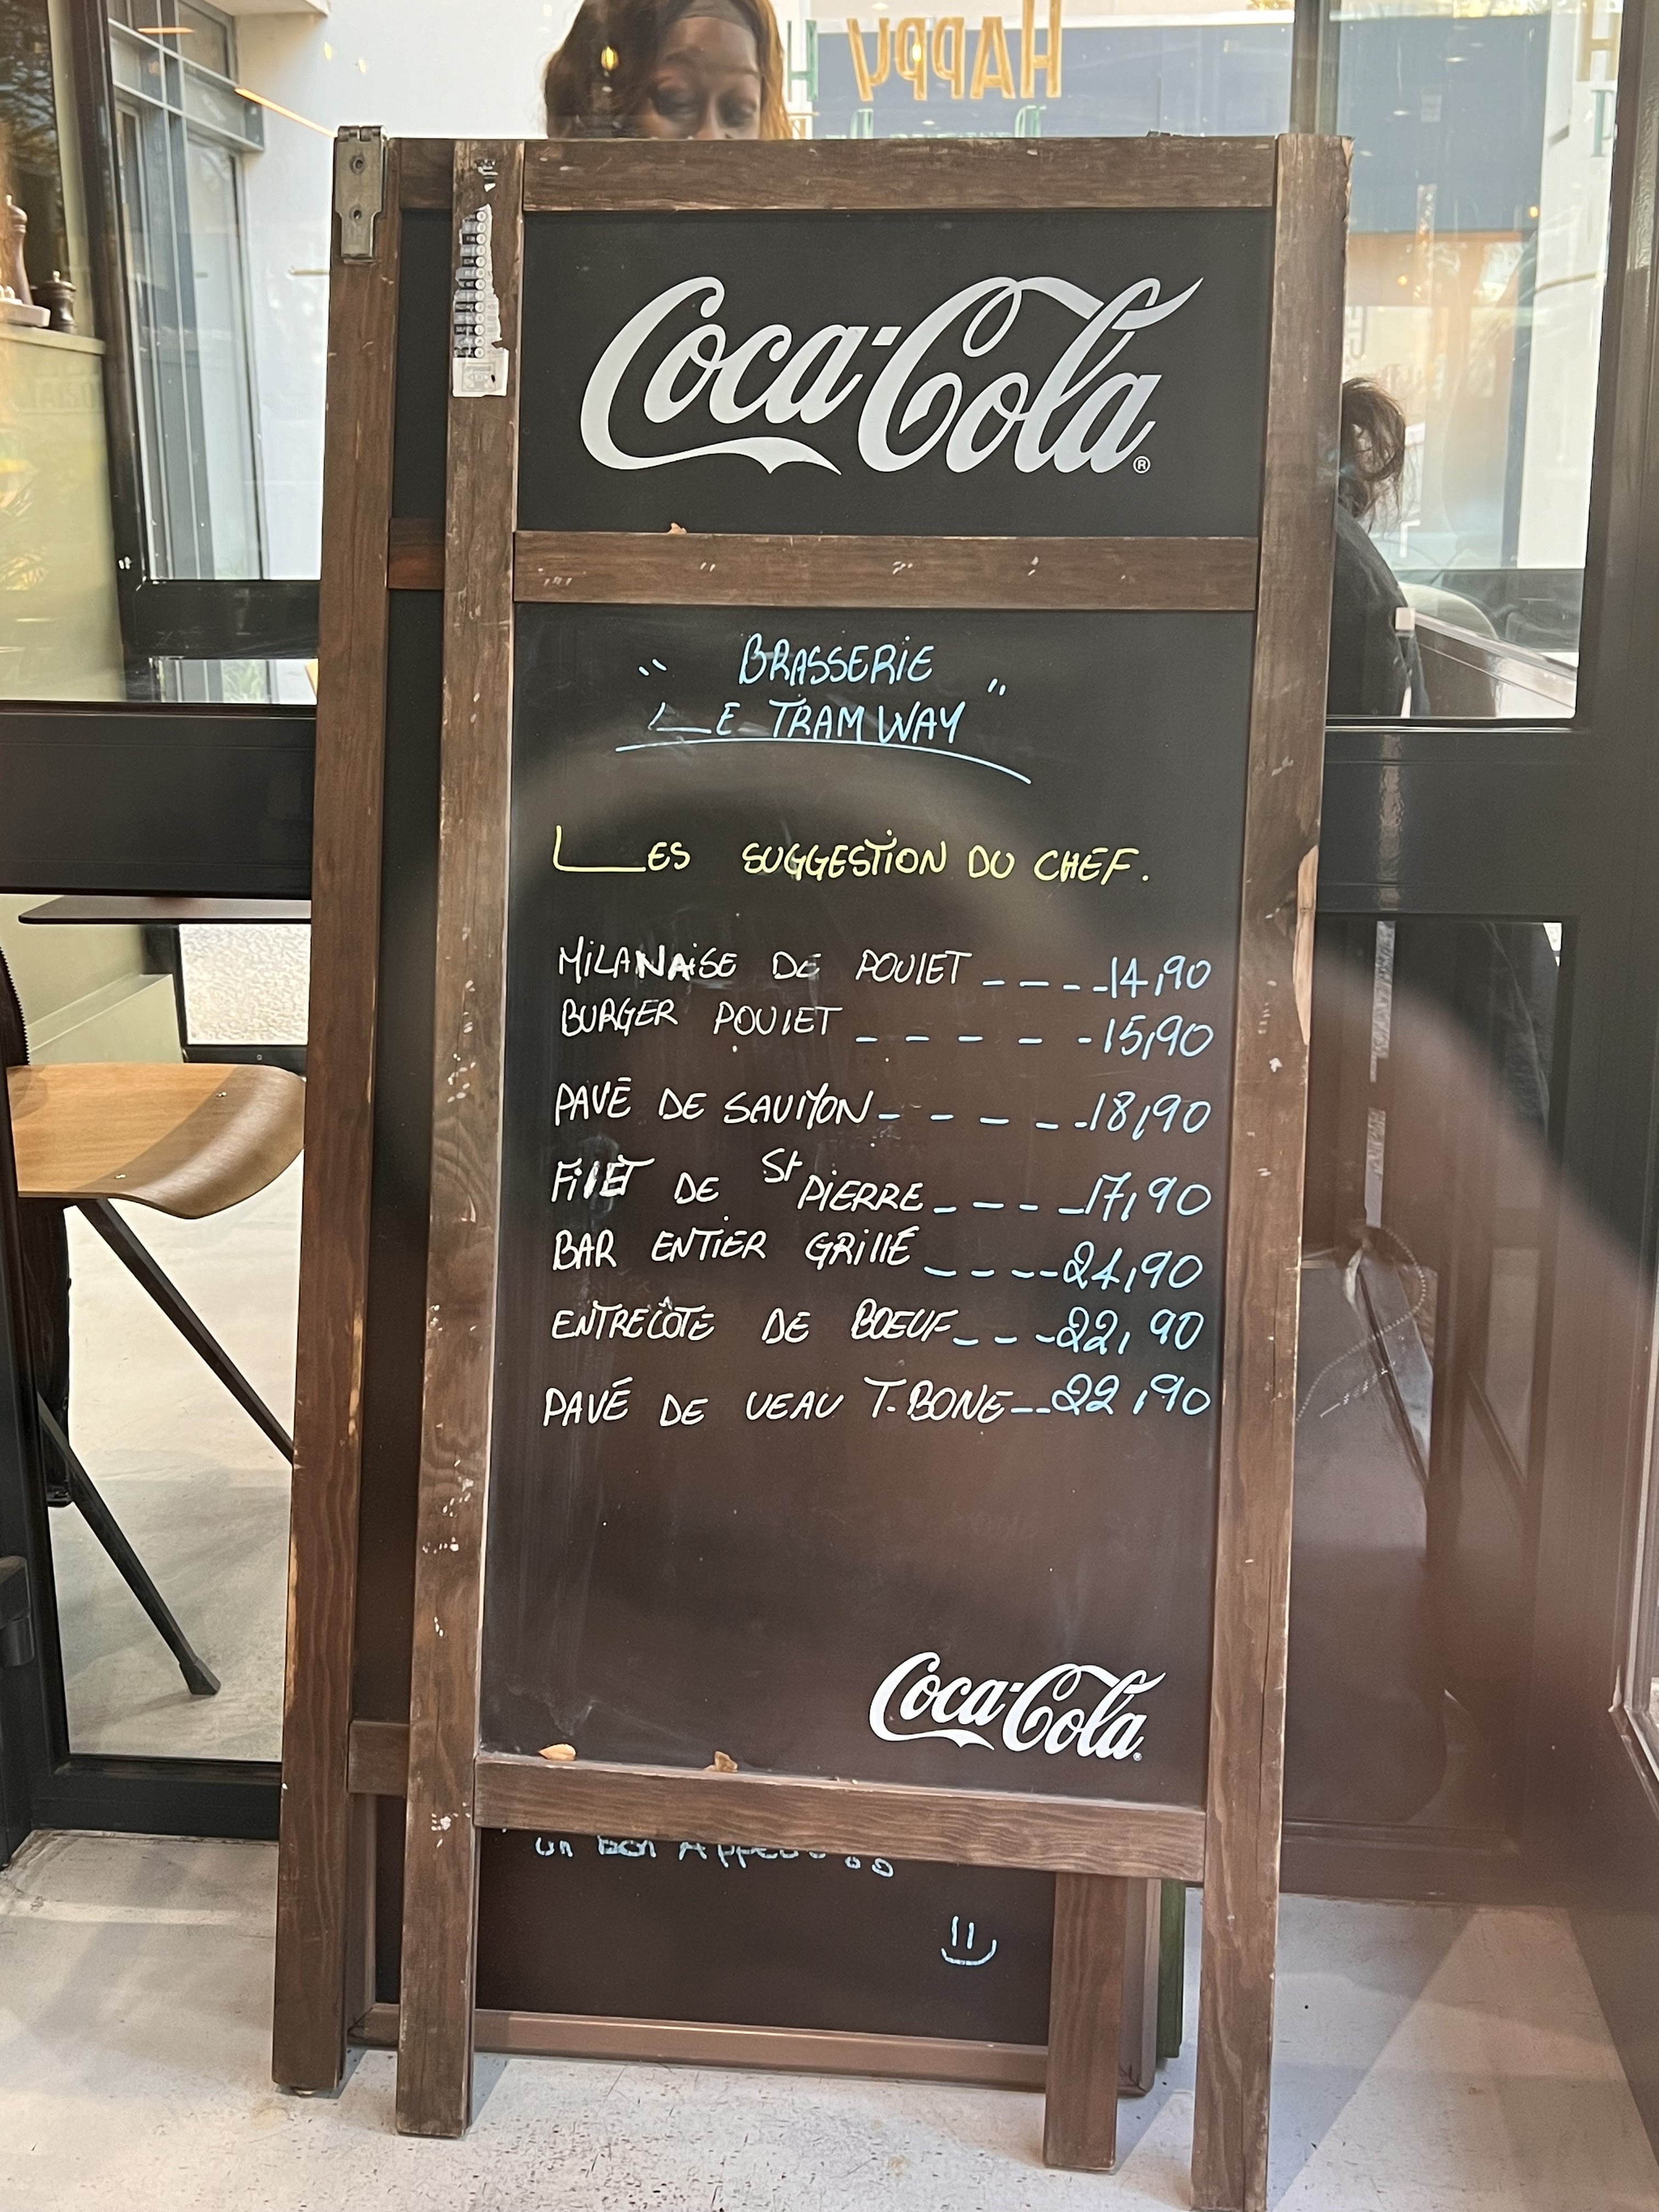 HAPPY
Coca-Cola®
" BRASSERIE
LE TRAMWAY "
LES SUGGESTION DU CHEF.
MILANAISE DE POULET _ _ _ _ 14,90
BURGER POULET _ _ _ _ - 15,90
PAVÉ DE SAUMON _ _ _ _ _ 18,90
FILET DE St PIERRE _ _ _ _ 17,90
BAR ENTIER GRILLÉ _ _ _ _ 24,90
ENTRECÔTE DE BOEUF _ _ _ 22,90
PAVÉ DE VEAU T-BONE _ _ 22,90
Coca-Cola®
un Bon Appétit